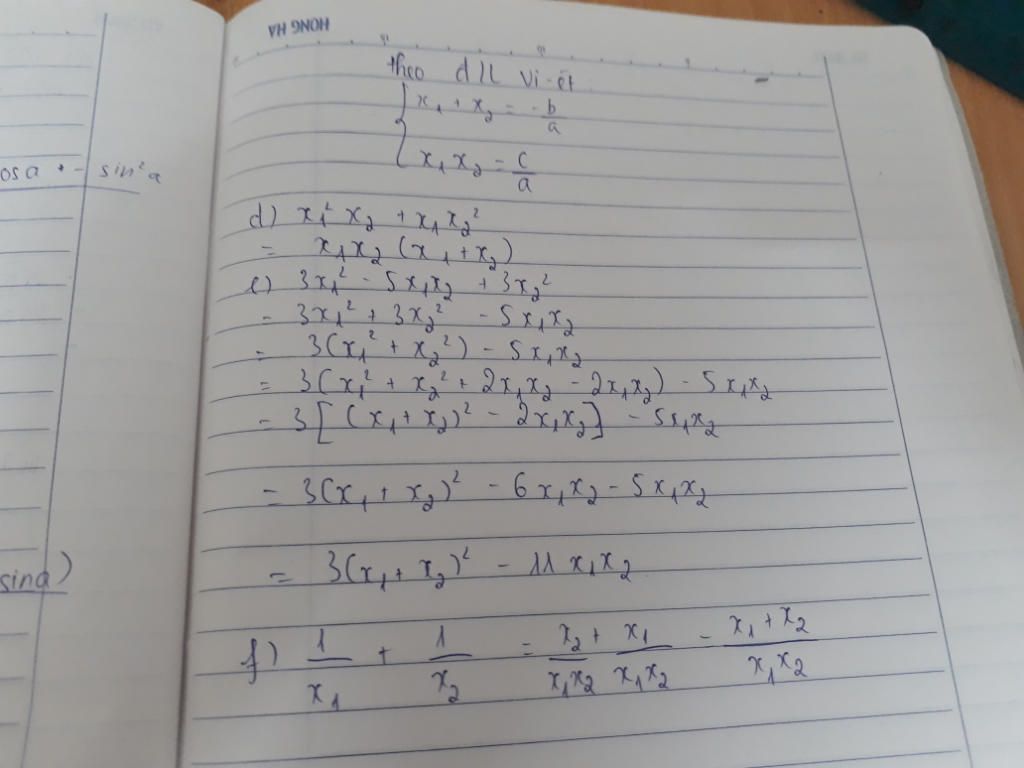 HONG HA
theo đ/l Vi-ét
{ x₁ + x₂ = -b/a
x₁ x₂ = c/a
osa + - sin²a
d) x₁² x₂ + x₁ x₂²
= x₁x₂ (x₁ + x₂)
e) 3x₁² - 5x₁x₂ + 3x₂²
= 3x₁² + 3x₂² - 5x₁x₂
= 3(x₁² + x₂²) - 5x₁x₂
= 3(x₁² + x₂² + 2x₁x₂ - 2x₁x₂) - 5x₁x₂
= 3[(x₁ + x₂)² - 2x₁x₂] - 5x₁x₂
= 3(x₁ + x₂)² - 6x₁x₂ - 5x₁x₂
= 3(x₁ + x₂)² - 11 x₁x₂
sina)
f) 1/x₁ + 1/x₂ = x₂/x₁x₂ + x₁/x₁x₂ = x₁ + x₂/x₁x₂